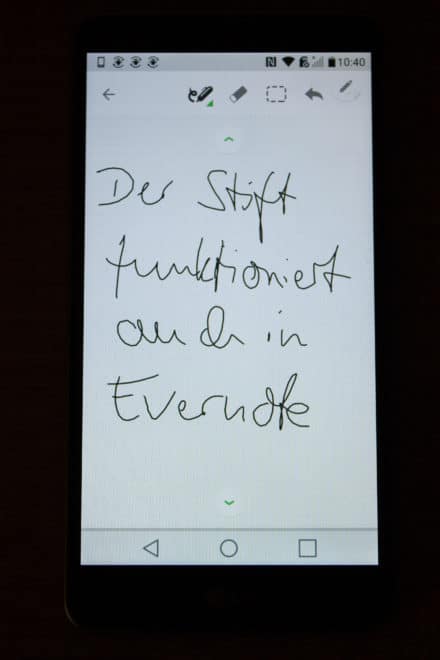 10:40
Der Stift
funktioniert
auch in
Evernote